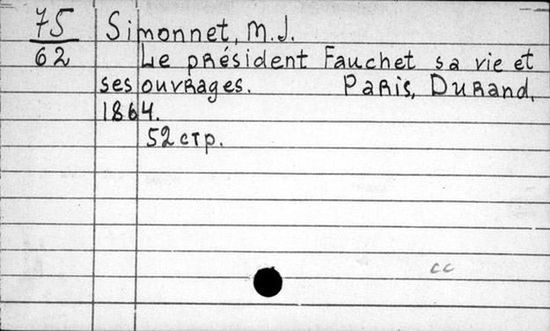 75 Simonnet, M.J.
62 Le président Fauchet sa vie et
ses ouvrages. Paris, Durand,
1864.
52 стр.
cc